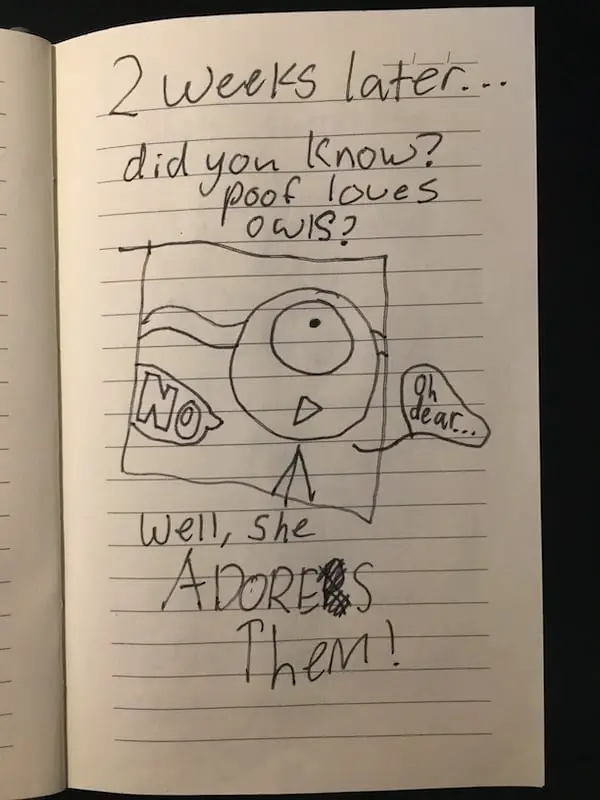 2 weeks later...
did you know?
poof loves
owls?
NO
Oh
dear...
Well, she
ADORES
Them!